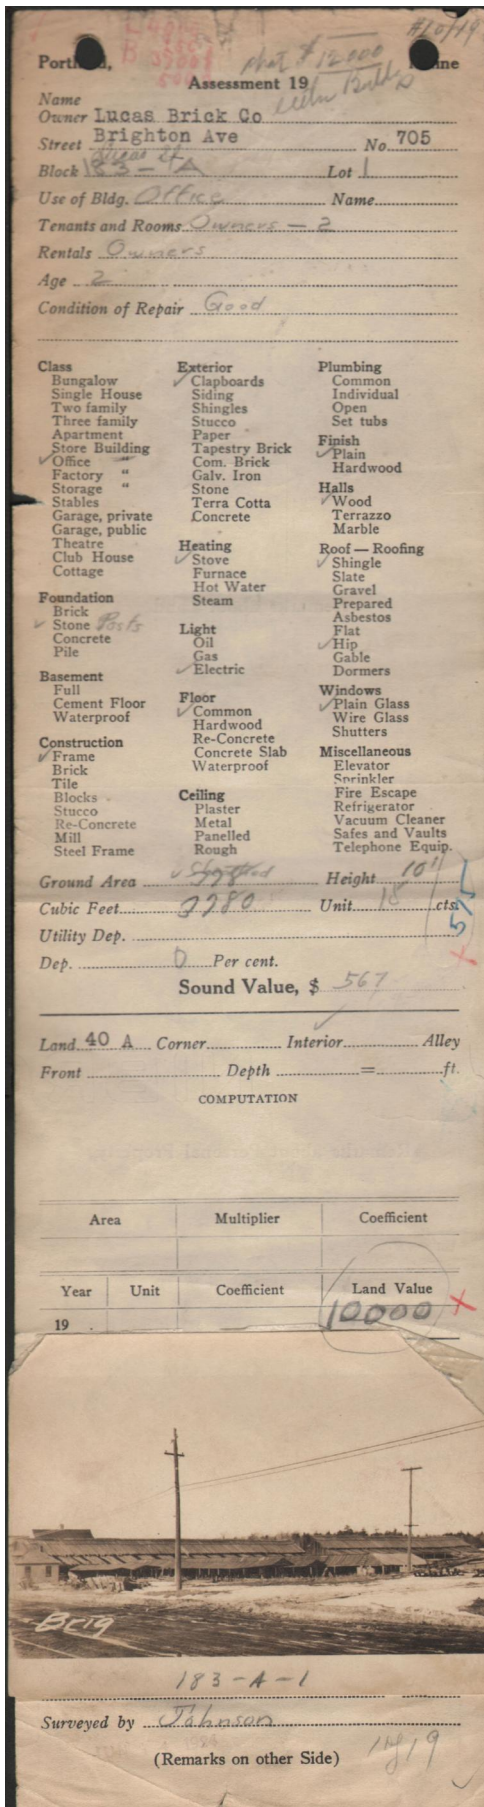 #10/19
$12000
Portland, Maine
Assessment 19
Name
Owner Lucas Brick Co
Street Brighton Ave No. 705
Block 183-A Lot 1
Use of Bldg. Office Name
Tenants and Rooms Owners - 2
Rentals Owners
Age 2
Condition of Repair Good
Class
Bungalow
Single House
Two family
Three family
Apartment
Store Building
✓ Office "
Factory "
Storage "
Stables
Garage, private
Garage, public
Theatre
Club House
Cottage
Foundation
Brick
✓ Stone Posts
Concrete
Pile
Basement
Full
Cement Floor
Waterproof
Construction
✓ Frame
Brick
Tile
Blocks
Stucco
Re-Concrete
Mill
Steel Frame
Exterior
✓ Clapboards
Siding
Shingles
Stucco
Paper
Tapestry Brick
Com. Brick
Galv. Iron
Stone
Terra Cotta
Concrete
Heating
✓ Stove
Furnace
Hot Water
Steam
Light
Oil
Gas
✓ Electric
Floor
✓ Common
Hardwood
Re-Concrete
Concrete Slab
Waterproof
Ceiling
Plaster
Metal
Panelled
Rough
Plumbing
Common
Individual
Open
Set tubs
Finish
✓ Plain
Hardwood
Halls
✓ Wood
Terrazzo
Marble
Roof — Roofing
✓ Shingle
Slate
Gravel
Prepared
Asbestos
Flat
✓ Hip
Gable
Dormers
Windows
✓ Plain Glass
Wire Glass
Shutters
Miscellaneous
Elevator
Sprinkler
Fire Escape
Refrigerator
Vacuum Cleaner
Safes and Vaults
Telephone Equip.
Ground Area Height 10'
Cubic Feet Unit 15 cts.
575
Utility Dep.
Dep. 0 Per cent.
Sound Value, $ 567
Land 40 A Corner Interior ✓ Alley
Front Depth = ft.
COMPUTATION
Area Multiplier Coefficient
Year Unit Coefficient Land Value
19 10000
Brig
183-A-1
Surveyed by Johnson
(Remarks on other Side)